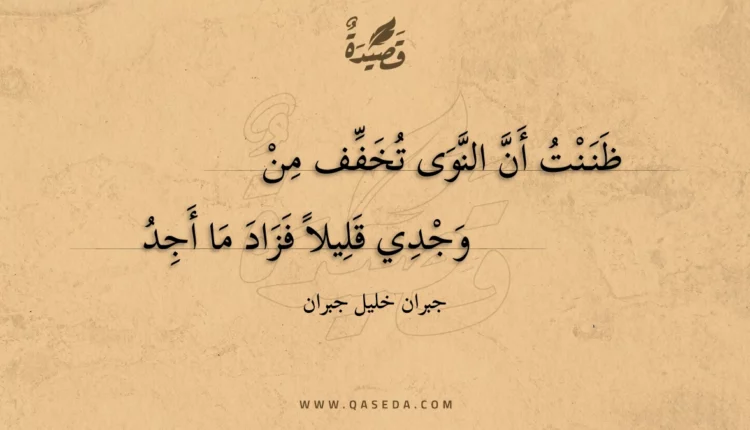 قَصِيدَةٌ
ظَنَنْتُ أَنَّ النَّوَى تُخَفِّف مِنْ
وَجْدِي قَلِيلاً فَزَادَ مَا أَجِدُ
جبران خليل جبران
WWW.QASEDA.COM